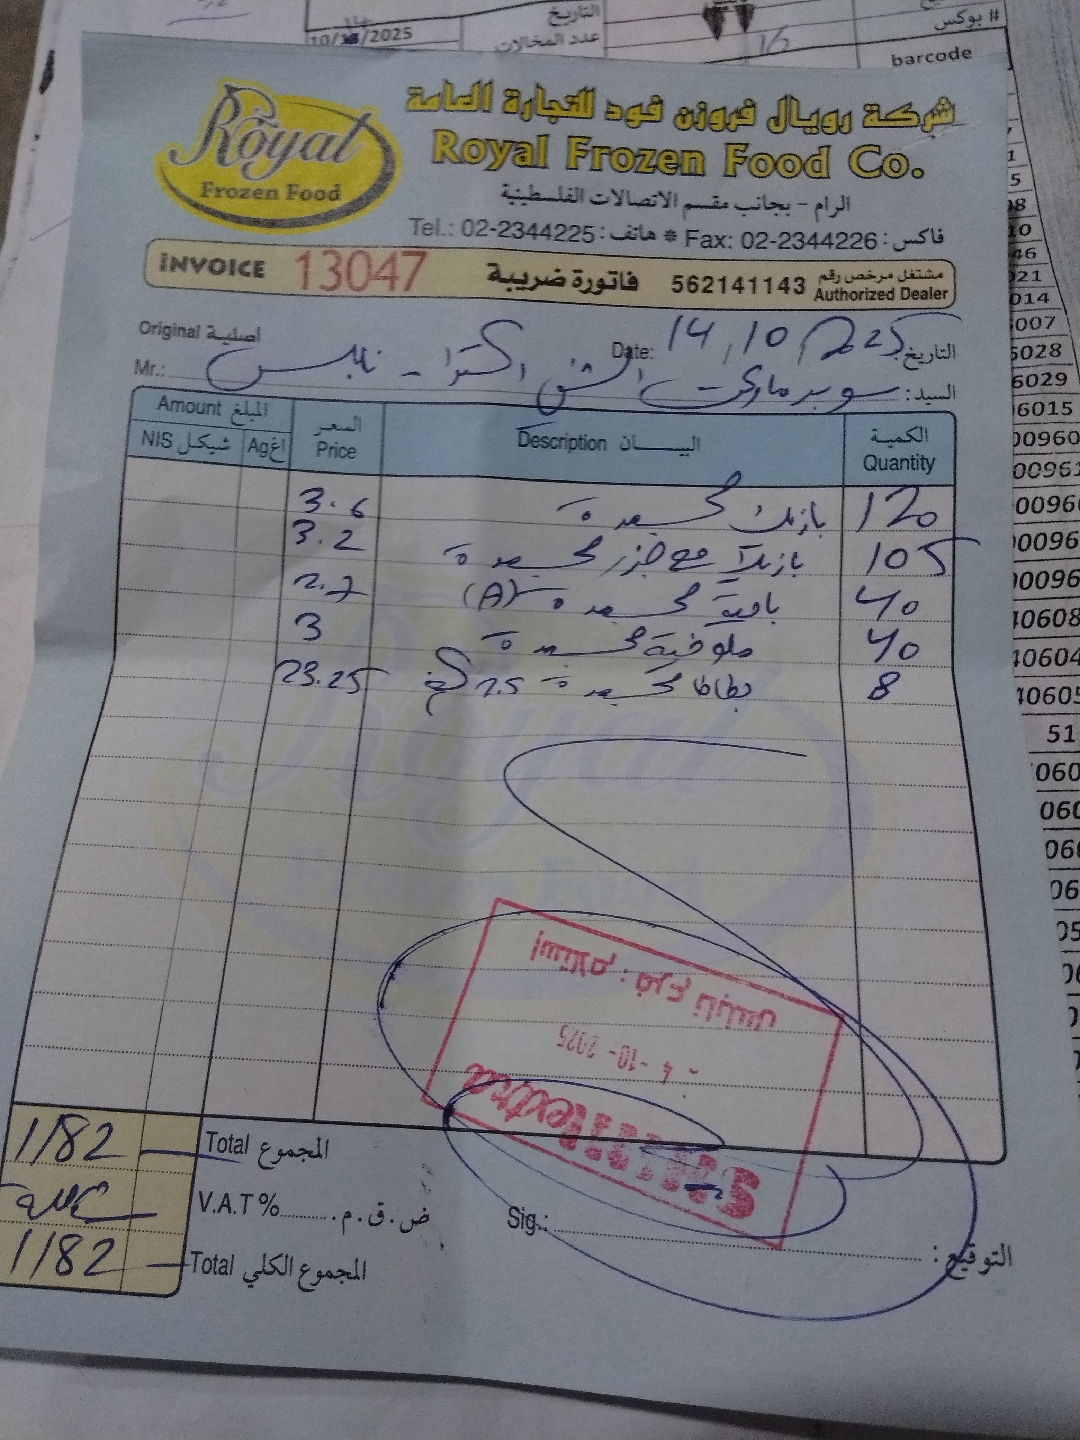 10/13/2025
التاريخ
عدد المخالات
16
# بوكس
barcode
Royal
Frozen Food
شركة رويال فروزن فود للتجارة العامة
Royal Frozen Food Co.
الرام - بجانب مقسم الاتصالات الفلسطينية
Tel.: 02-2344225 : هاتف * Fax: 02-2344226 : فاكس
INVOICE 13047 فاتورة ضريبة 562141143 مشتغل مرخص رقم Authorized Dealer
Original أصلية
Date: 14,10,2025 التاريخ
Mr.: سوبرماركت الشني اكسترا - نابلس السيد:
Amount المبلغ
NIS شيكل
Ag اغ
السعر Price
Description البيان
الكمية Quantity
3.6 بازيلا مجمدة 120
3.2 بازيلا مع جزر مجمدة 105
2.7 بامية مجمدة (A) 40
3 ملوخية مجمدة 40
23.25 بطاطا مجمدة 2.5 كغ 8
إستلام : فرع نابلس
- 4 -10- 2025
1182 Total المجموع
V.A.T % ض.ق.م.
1182 Total المجموع الكلي
Sig.: التوقيع :
014
5028
6029
6015
00960
40608
40604
40605
51